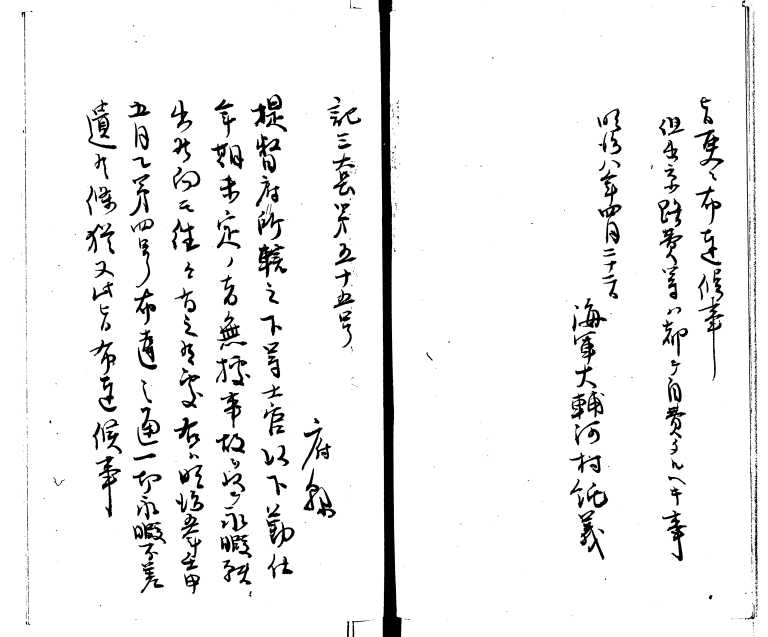 旨更ニ布達候事
但出京路費等ハ都テ自費タルヘキ事
明治八年四月二十二日
海軍大輔河村純義
記三套第五十五号
府縣
提督府所轄之下等士官以下勤仕
年期未定ノ者無據事故ヲ以テ永暇願
出候向モ往々有之候處右ハ明治五年壬申
五月乙第四号布達之通一切永暇不差
遣候條猶又此旨布達候事